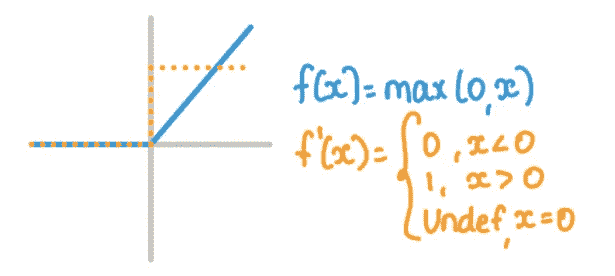 f(x)=max(0,x)
f'(x)={0, x<0
1, x>0
Undef, x=0